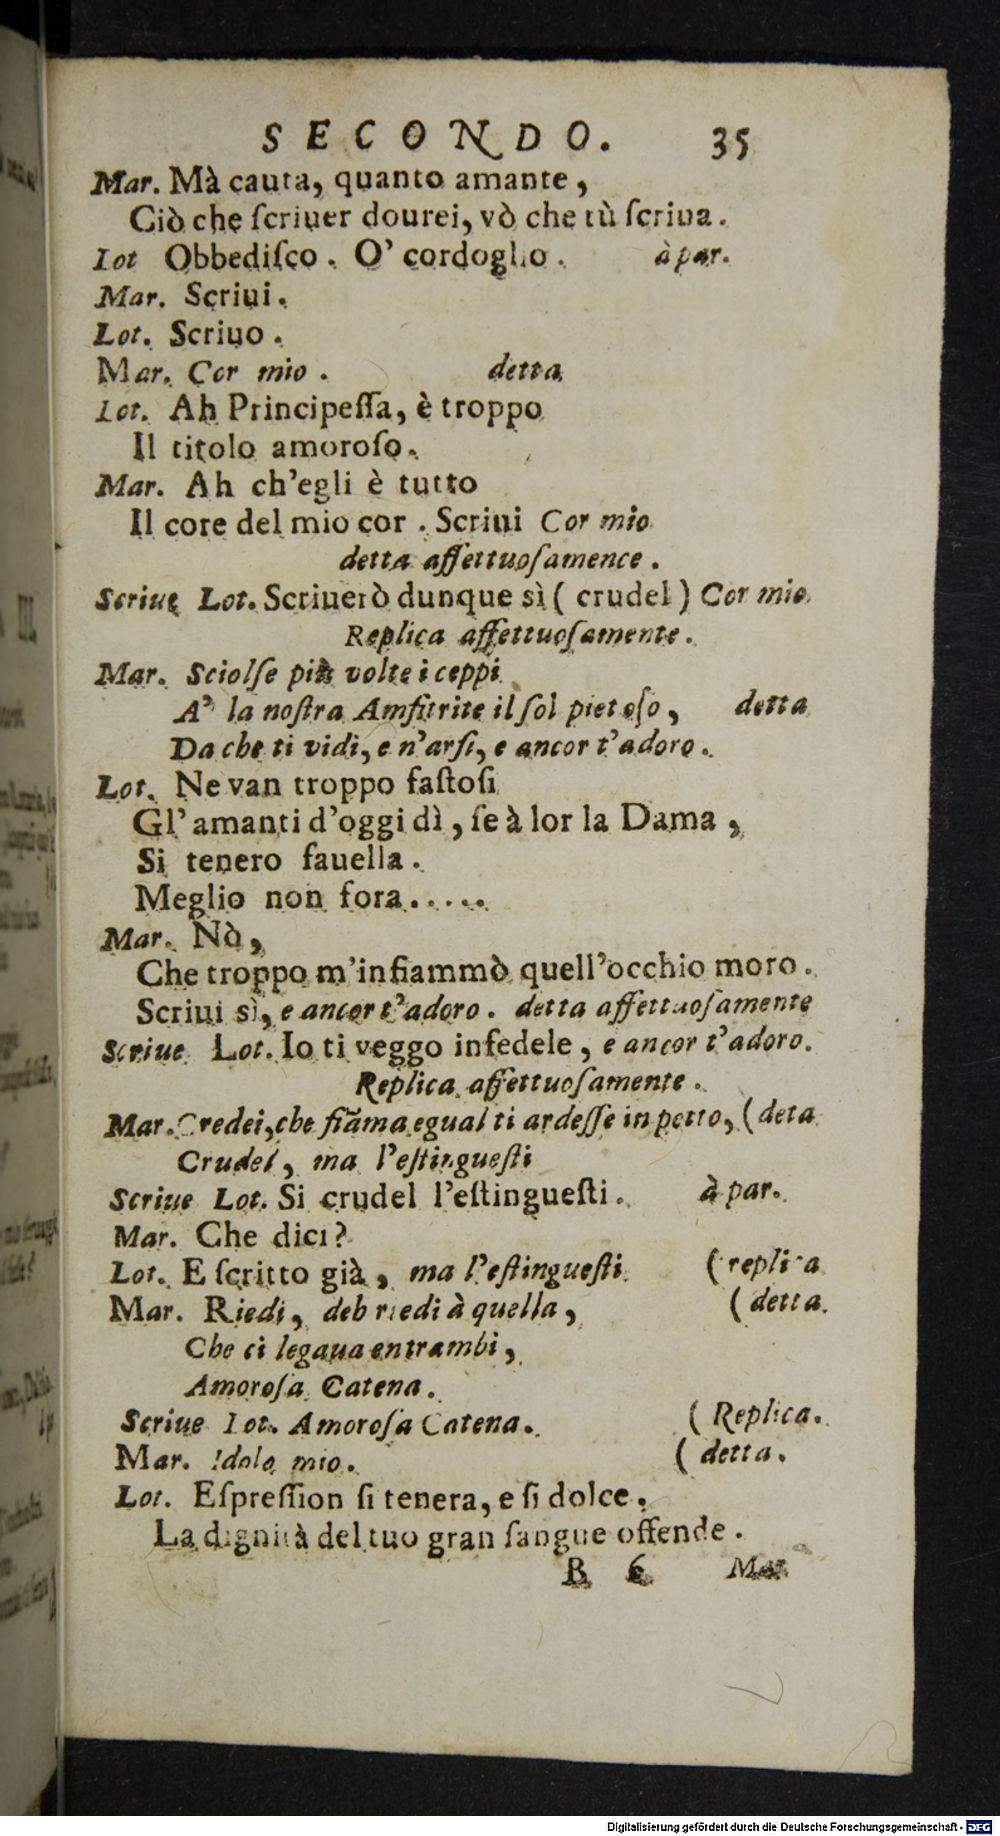 SECONDO. 35
Mar. Mà cauta, quanto amante,
Ciò che ſcriuer dourei, vò che tù ſcriua.
Lot Obbediſco. O' cordoglio. à par.
Mar. Scriui.
Lot. Scriuo.
Mar. Cor mio. detta
Lot. Ah Principeſſa, è troppo
Il titolo amoroſo.
Mar. Ah ch'egli è tutto
Il core del mio cor. Scriui Cor mio
detta affettuoſamence.
Scriue Lot. Scriuerò dunque sì ( crudel ) Cor mio.
Replica affettuoſamente.
Mar. Sciolſe più volte i ceppi
A' la noſtra Amfitrite il ſol pietoſo, detta
Da che ti vidi, e n'arſi, e ancor t'adoro.
Lot. Ne van troppo faſtoſi
Gl'amanti d'oggi dì, ſe à lor la Dama,
Si tenero fauella.
Meglio non fora.....
Mar. Nò,
Che troppo m'infiammò quell'occhio moro.
Scriui sì, e ancor t'adoro. detta affettuoſamente
Scriue Lot. Io ti veggo infedele, e ancor t'adoro.
Replica affettuoſamente.
Mar. Credei, che fiãma egual ti ardeſſe in petto, (deta
Crudel, ma l'eſtingueſti
Scriue Lot. Si crudel l'eſtingueſti. à par.
Mar. Che dici?
Lot. E ſcritto già, ma l'eſtingueſti. (replica
Mar. Riedi, deh riedi à quella, (detta.
Che ci legaua entrambi,
Amoroſa Catena.
Scriue Lot. Amoroſa Catena. (Replica.
Mar. Idolo mio. (detta.
Lot. Eſpreſſion ſi tenera, e ſi dolce,
La dignità del tuo gran ſangue offende.
B 6 Mar.
Digitalisierung gefördert durch die Deutsche Forschungsgemeinschaft - DFG